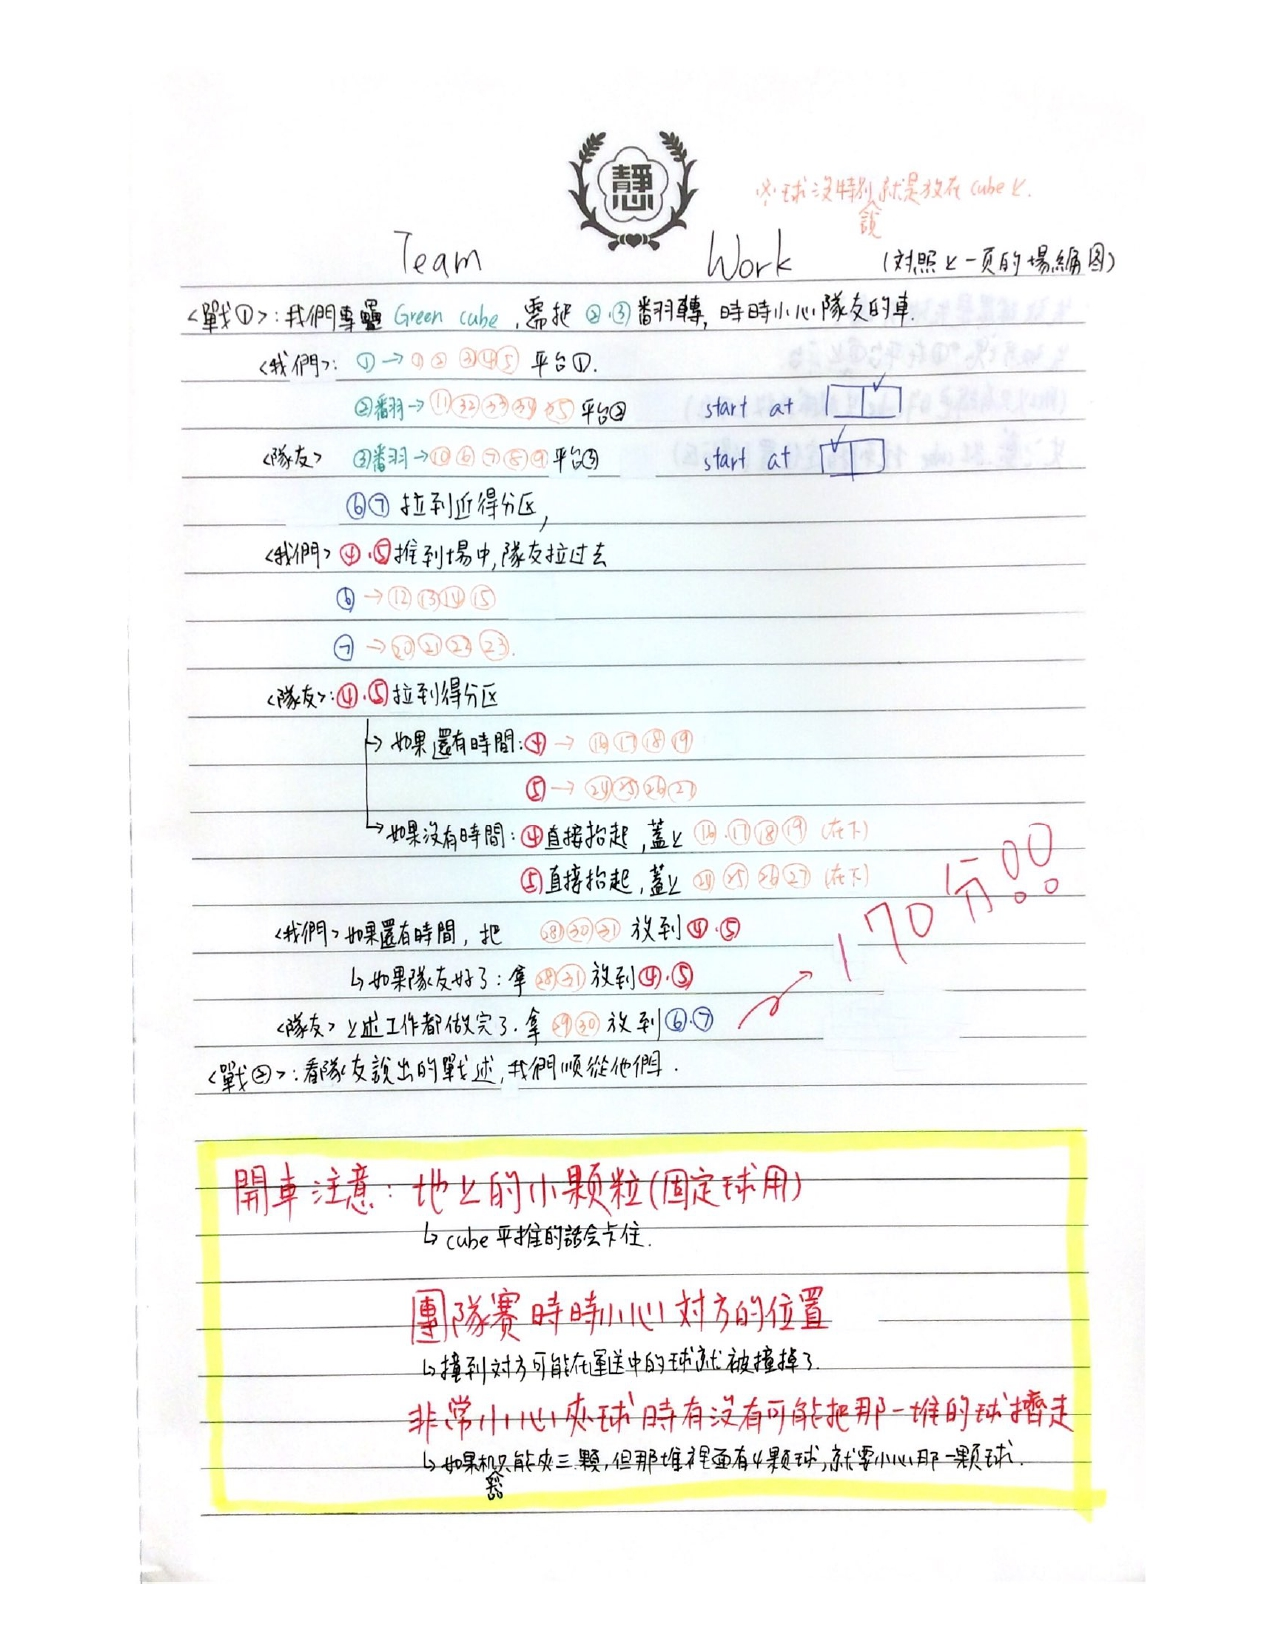 靜心
※球沒特別說就是放在cube上.
Team Work (対照上一頁的場編圖)
<戰①>:我們專疊 Green cube,需把②③翻轉,時時小心隊友的車.
<我們>: ①→①②③④⑤平台①.
②翻→⑪㉜㉝㉞㉟平台② start at
<隊友> ③翻→⑩⑥⑦⑧⑨平台③ start at
⑥⑦拉到近得分区,
<我們>④.⑤推到場中,隊友拉过去
⑥→⑫⑬⑭⑮
⑦→⑳㉑㉒㉓.
<隊友>:④.⑤拉到得分区
→如果還有時間:④→⑯⑰⑱⑲
⑤→㉔㉕㉖㉗
→如果沒有時間:④直接抬起,蓋上⑯.⑰⑱⑲(在下)
⑤直接抬起,蓋上㉔㉕㉖㉗(在下)
<我們>如果還有時間,把㉘㉚㉛放到④.⑤
↳如果隊友好了:拿㉘㉛放到④.⑤
<隊友>上述工作都做完了.拿㉙㉚放到⑥.⑦
→170分!!
<戰②>:看隊友說出的戰述,我們順從他們.
開車注意:地上的小顆粒(固定球用)
↳cube平推的話会卡住.
團隊賽時時小心対方的位置
↳撞到対方可能在運送中的球就被撞掉了.
非常小心夾球時有沒有可能把那一堆的球擠走
↳如果机器只能夾三顆,但那堆裡面有4顆球,就要小心那一顆球.